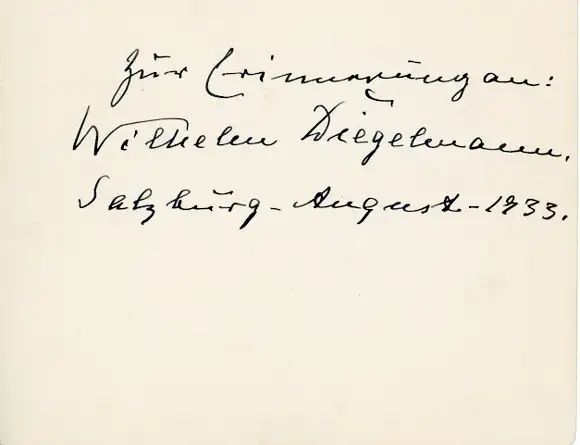 Zur Erinnerung an:
Wilhelm Diegelmann.
Salzburg - August - 1933.